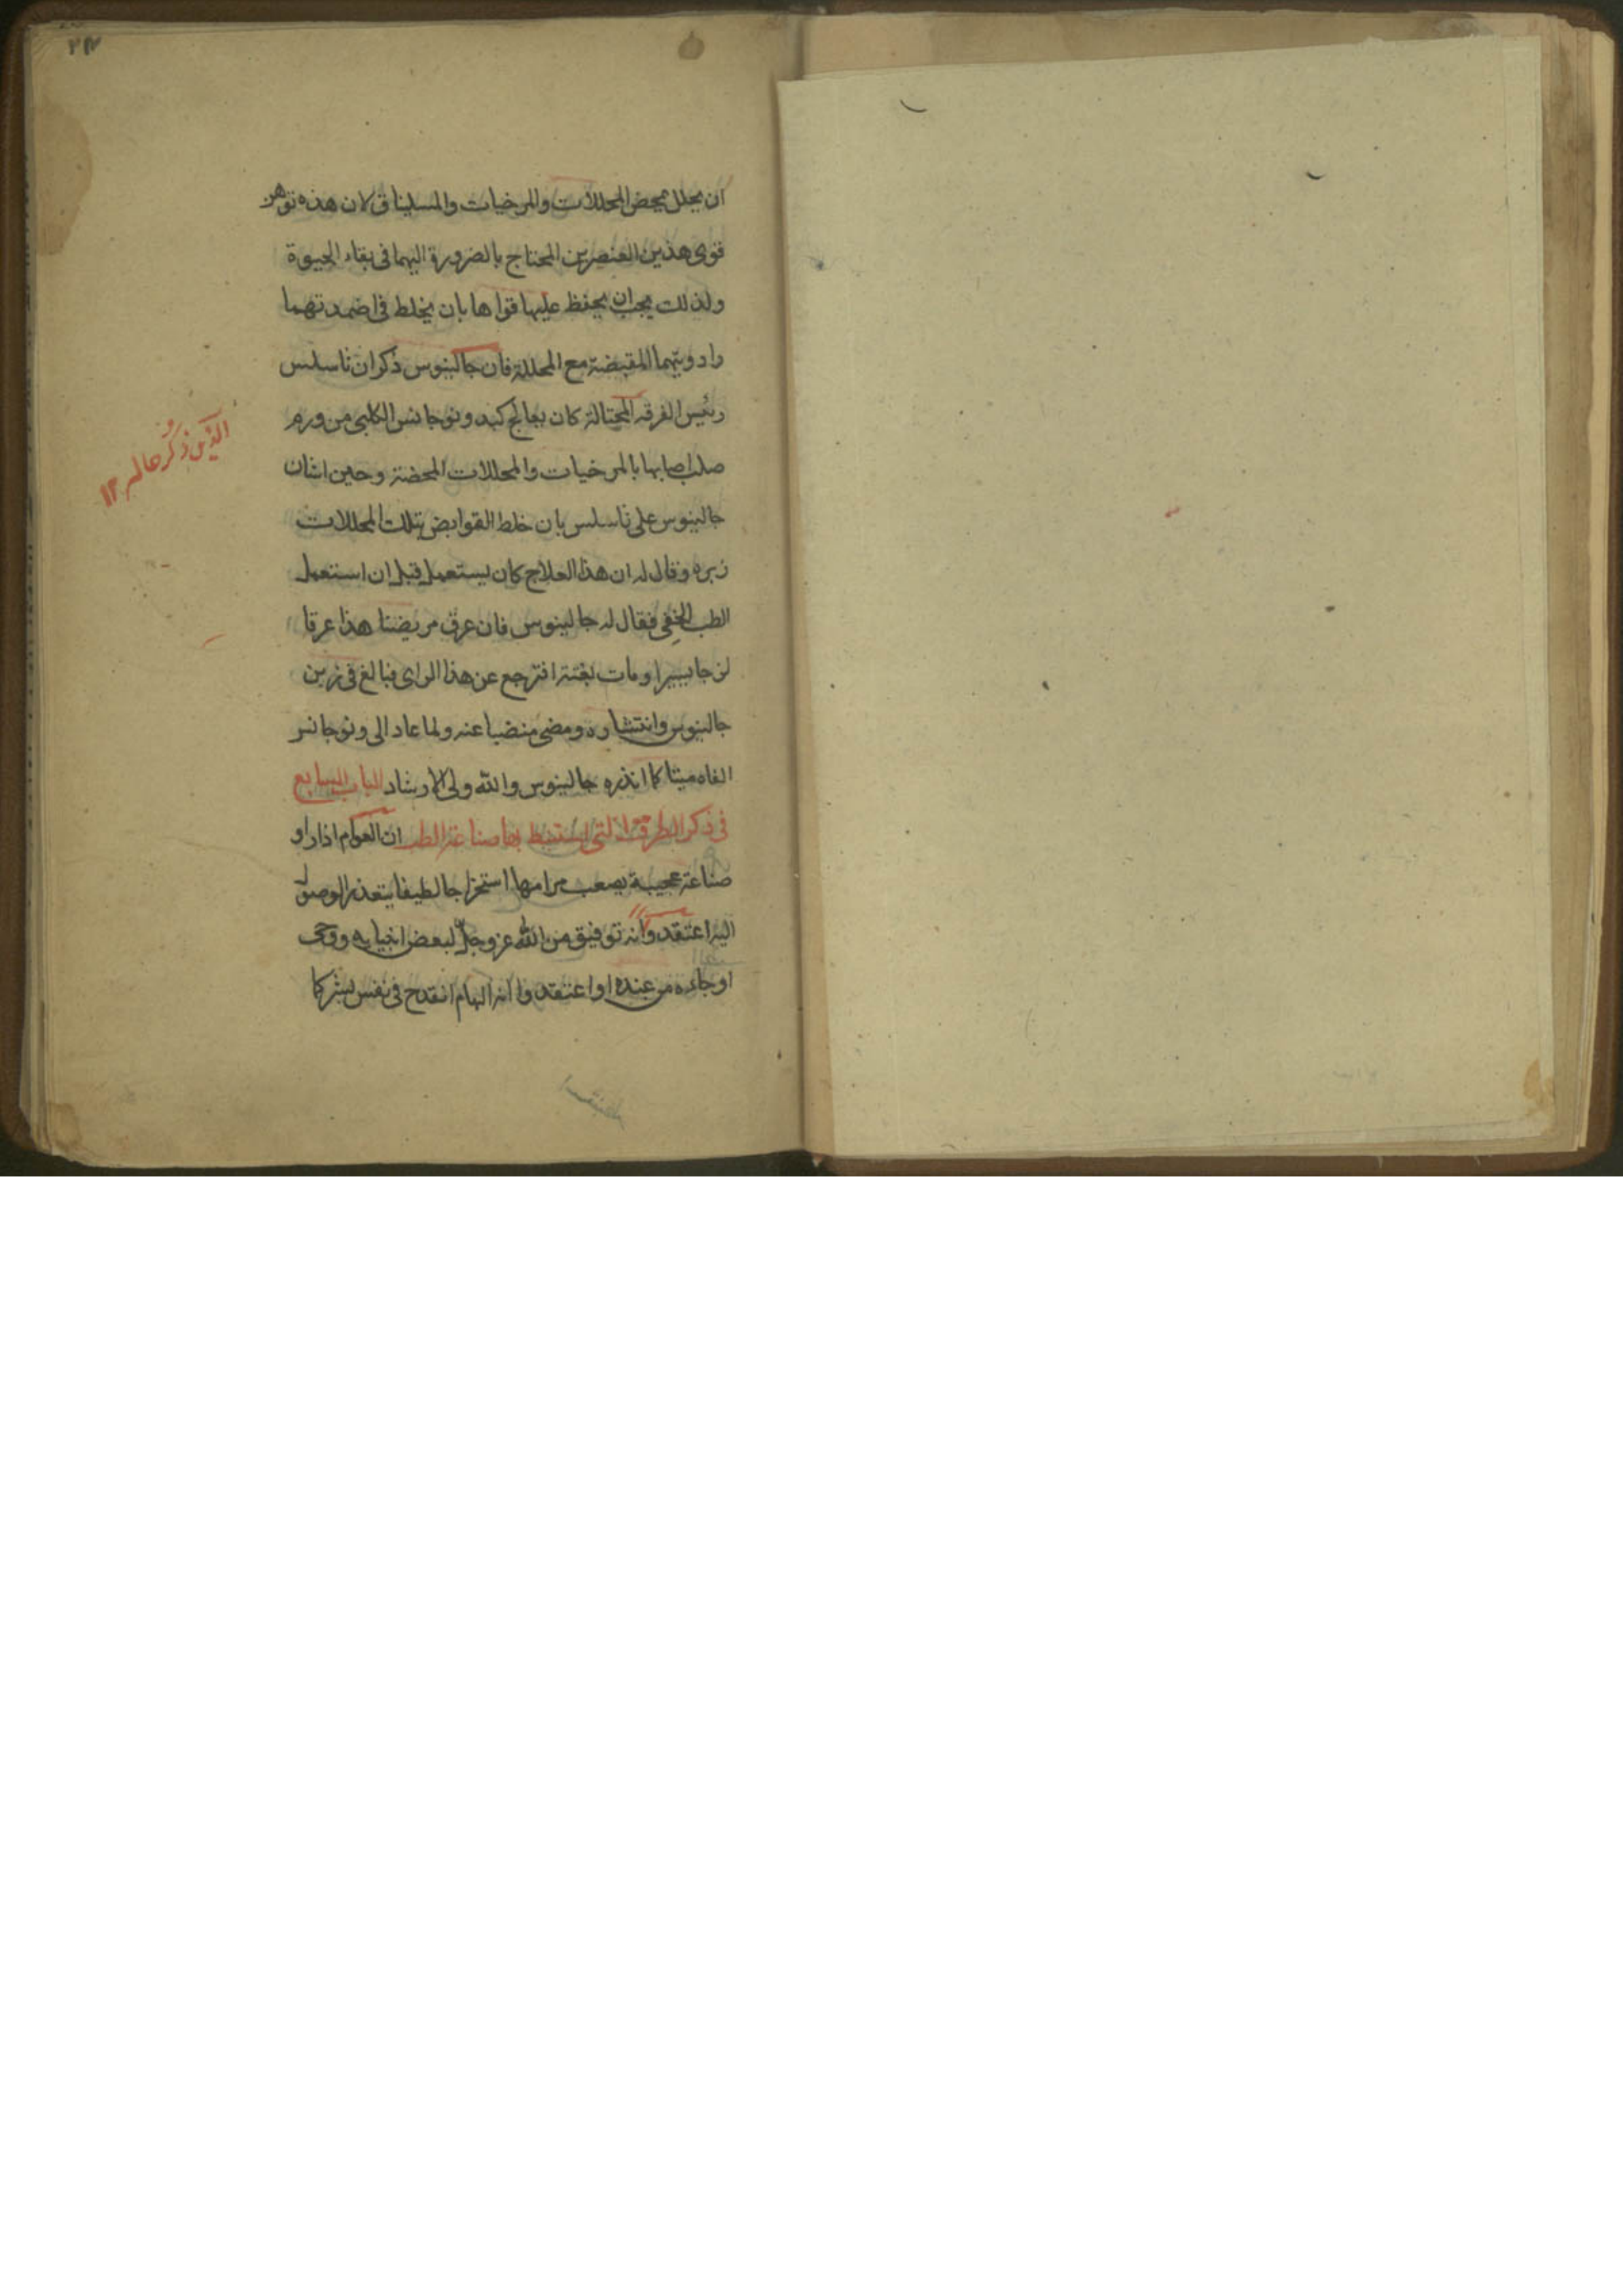 ان يحلل بمحض المحللات والمرخيات والمسلينات لان هذه توهن
قوى هذين العنصرين المحتاج بالضرورة اليهما فى بقاء الحيوة
ولذلك يجب ان يحفظ عليها قواها بان يخلط فى اضمدتهما
وادويتهما المقبضة مع المحللة فان جالينوس ذكر ان ثاسلس
رئيس الفرقه المحتالة كان يعالج كبد ونوجانس الكلبى من ورم
صلب اصابها بالمرخيات والمحللات المحضة وحين اشان
جالينوس على ثاسلس بان خلط القوابض بتلك المحللات
زبره وقال له ان هذا العلاج كان يستعمل قبل ان استعمل
الطب الخفى فقال له جالينوس فان عرق مريضنا هذا عرقا
لزجا يسيرا ومات بغتة افترجع عن هذا الراى فبالغ فى زبن
جالينوس وانتشاره ومضى منضبا عنه ولما عاد الى ونوجانس
الفاه ميتا كما انذره جالينوس والله ولى الارشاد الباب السابع
فى ذكر الطرق التى استنبط بها صناعة الطب ان العوام اذا راو
صناعة عجيبة يصعب مرامها استخراجا لطيفا يتعذر الوصول
اليه اعتقدوا انه توفيق من الله عز وجل لبعض انبيايه ووحى
او جاءه من عنده او اعتقدوا انه الهام انقدح فى نفس بشر كما
الذين ذكر حاله ١٢